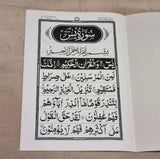 سورة يس
بسم الله الرحمن الرحيم
يس والقران الحكيم انك
لمن المرسلين على صراط
مستقيم تنزيل العزيز الرحيم
لتنذر قوما ما انذر اباؤهم
فهم غفلون لقد حق القول
على اكثرهم فهم لا يؤمنون